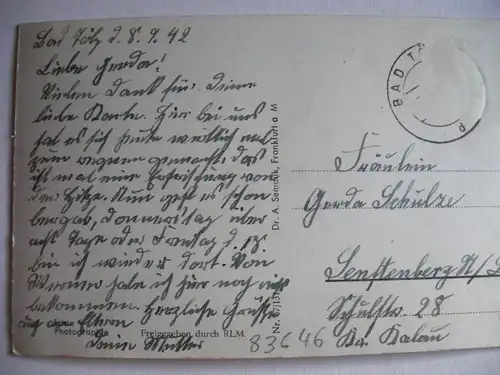 Bad Tölz d. 8. 9. 42
Liebe Gerda!
Vielen Dank für Deine
liebe Karte. Hier bei uns
hat es sich heute wirklich mal
zum regnen gemacht, das
ist mal eine Erfrischung von
der Hitze. Nun geht es schon
bergab, Donnerstag über
acht Tage oder Freitag d. 18.
bin ich wieder dort. Von
Werner habe ich hier noch nichts
bekommen. Herzliche Grüsse
Eltern
Deine Mutter
Photographie
Freigegeben durch RLM.
Dr. A. Frankfurt a M
BAD T
Fräulein
Gerda Schulze
Senftenberg N/L
Schulstr. 28
Kr. Kalau
83646